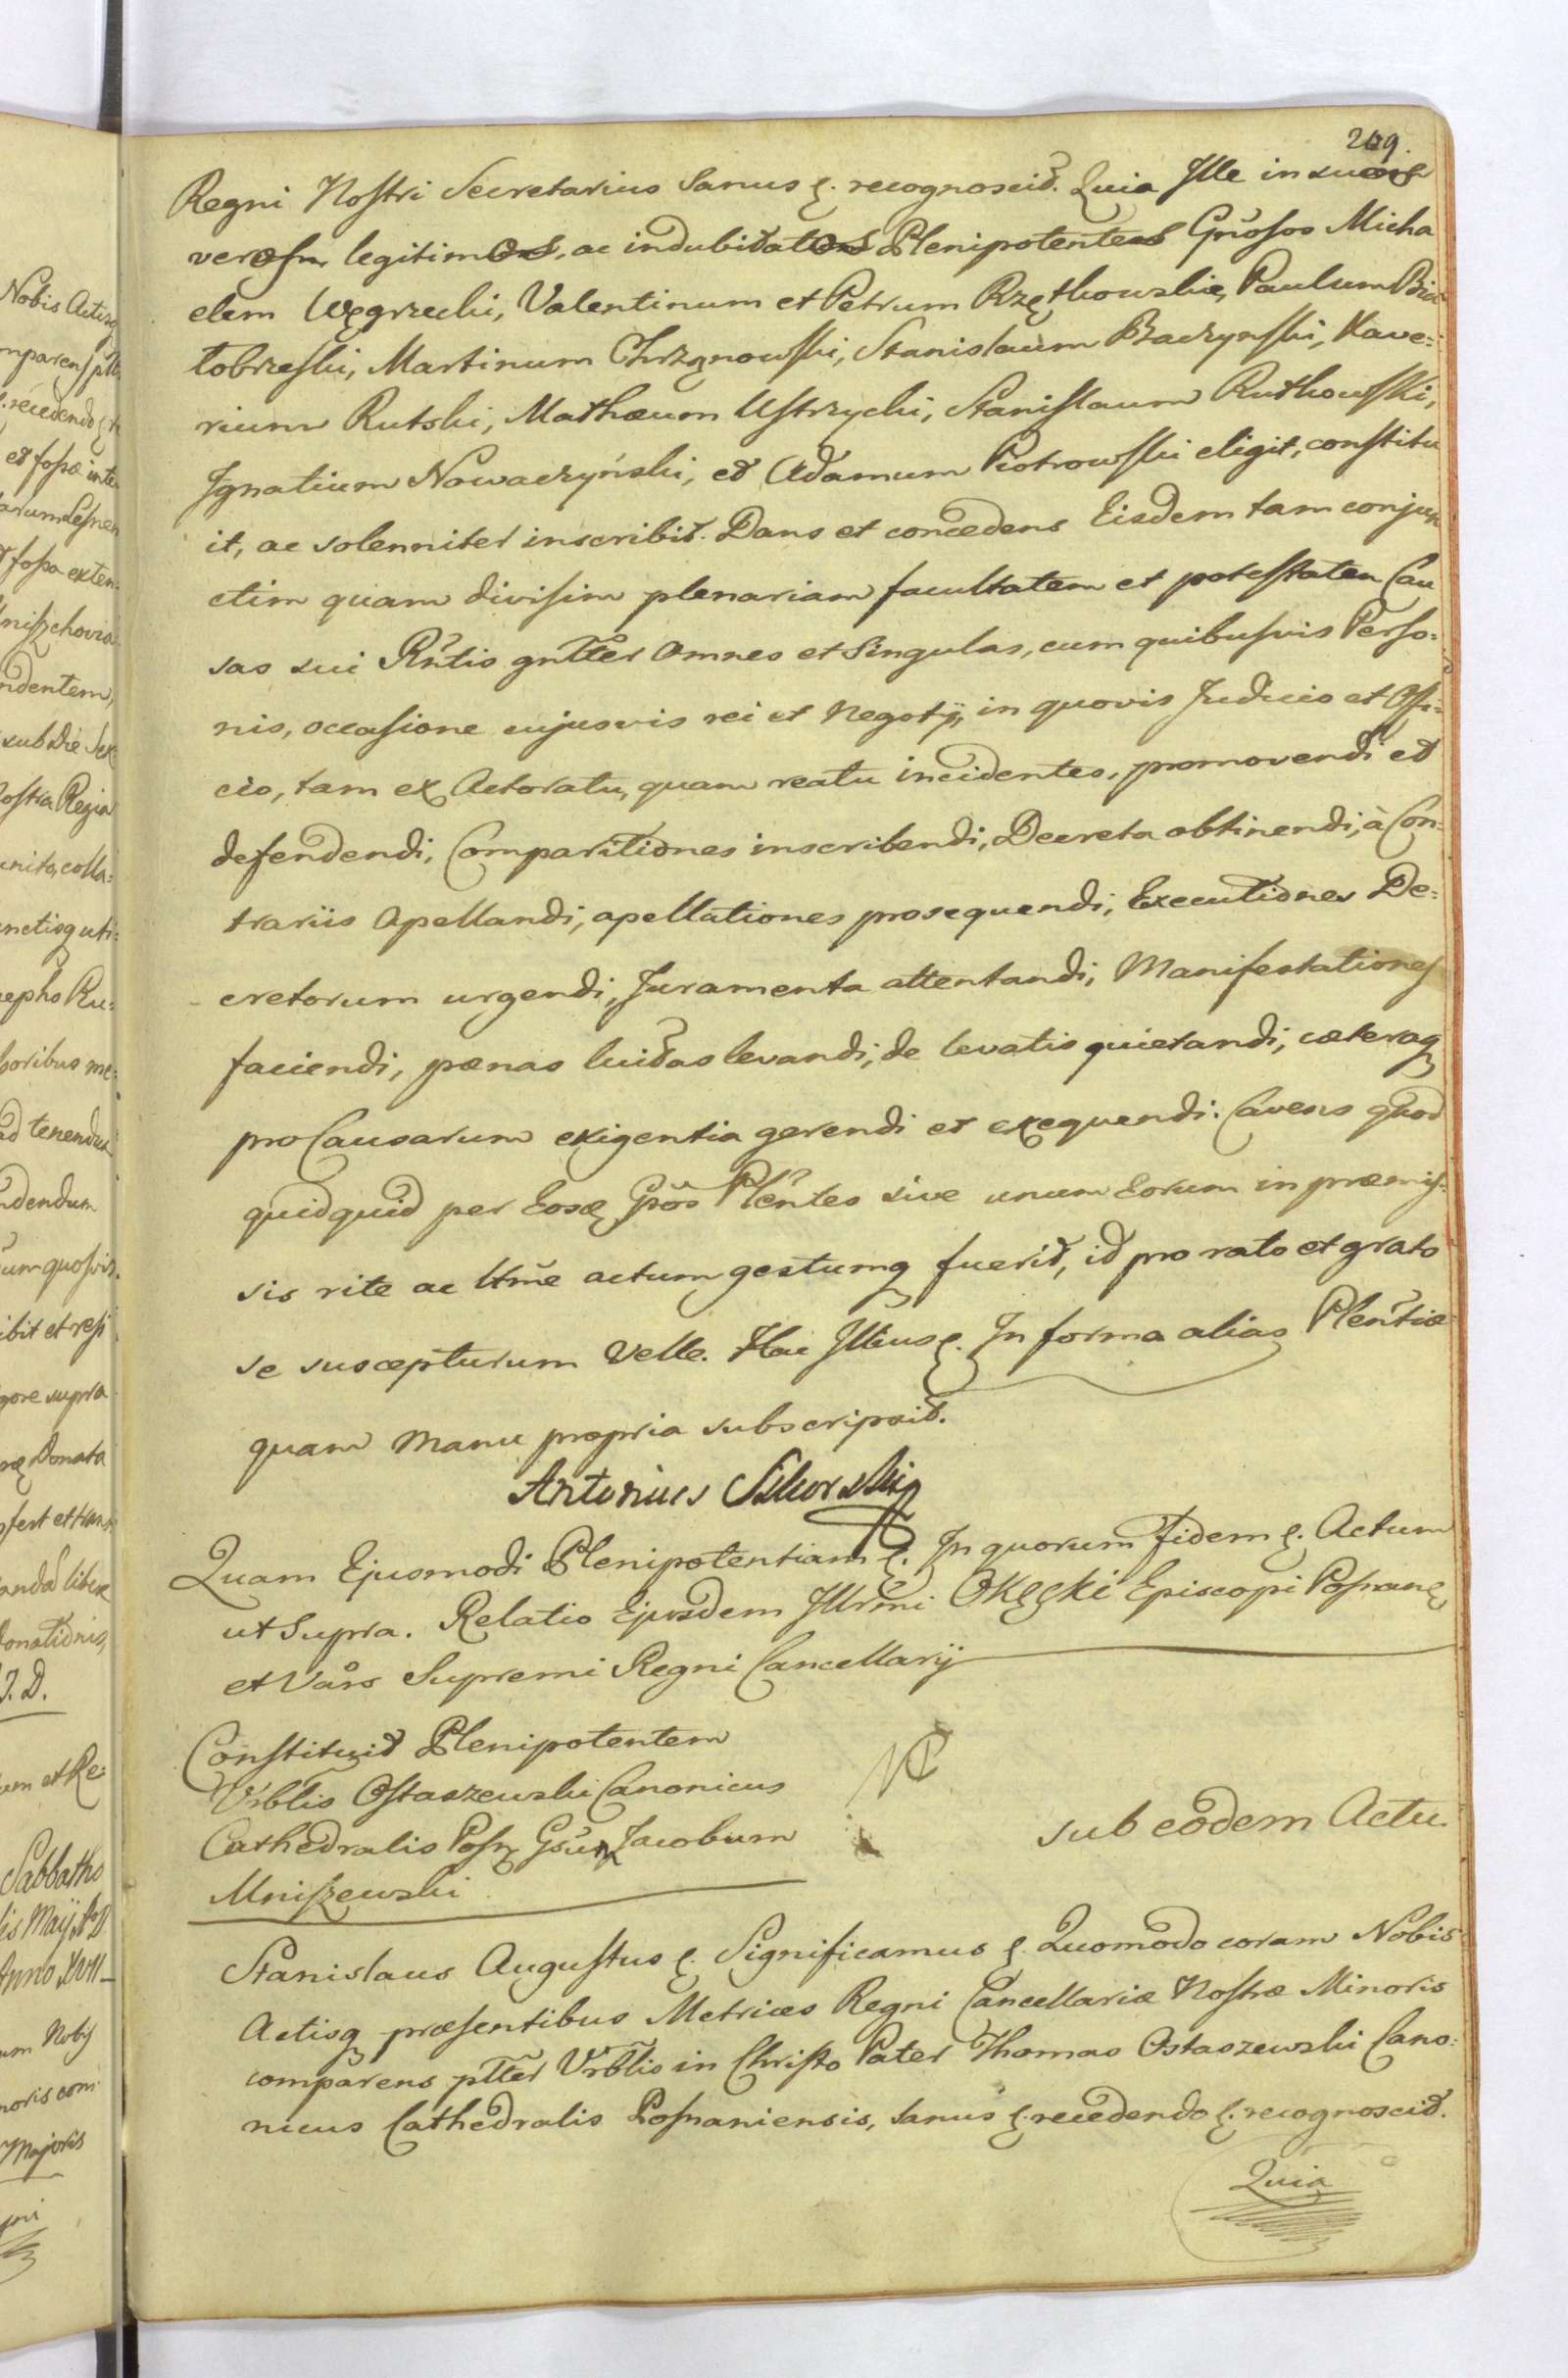 209.
Regni Nostri Secretarius Sanus &. recognoscit. Quia Ille in suos
veros legitimos, ac indubitatos Plenipotentes Gnosos Micha
elem Węgrzecki, Valentinum et Petrum Rzętkowskie, Paulum Bia
łobrzeski, Martinum Chrząnowski, Stanislaum Baczynski, Xave:
rium Rutski, Mathæum Ustrzycki, Stanislaum Rutkowski,
Ignatium Nowaczyński, et Adamum Piotrowski eligit, constitu
it, ac solenniter inscribit. Dans et concedens Eisdem tam conjun
ctim quam divisim plenariam facultatem et potestatem Cau
sas sui Rntis gnltter omnes et Singulas, cum quibusvis Perso:
nis, occasione cujusvis rei et Negotÿ, in quovis Judicio et Offi:
cio, tam ex Actoratu, quam reatu incidentes, promovendi et
defendendi, Comparitiones inscribendi, Decreta obtinendi, à Con:
trariis Apellandi, apellationes prosequendi, Executiones De:
cretorum urgendi, Juramenta attentandi, Manifestationes
faciendi, pœnas luitas levandi, de levatis quietandi, cæteraq
pro Causarum exigentia gerendi et exequendi. Cavens quod
quidquid per Eosd Gsos Plentes sive unum Eorum in præmis:
sis rite ac ltme actum gestumq fuerit, id pro rato et grato
se suscepturum velle. Hac Illius &. In forma alias Plentiæ
quam manu propria subscripsit.
Antonius Sikorski
Quam Ejusmodi Plenipotentiam &. In quorum fidem &. Actum
ut Supra. Relatio Ejusdem Illrmi Okęcki Episcopi Posnan
et Vars Supremi Regni Cancellarÿ
Constituit Plenipotentem
Vrblis Ostaszewski Canonicus
Cathedralis Posn Gsum Jacobum
Mniszewski
sub eodem Actu.
Stanislaus Augustus &. Significamus &. Quomodo coram Nobis
Actisq præsentibus Metrices Regni Cancellariæ Nostræ Minoris
comparens pltter Vrblis in Christo Pater Thomas Ostaszewski Cano:
nicus Cathedralis Posnaniensis, Sanus &. recedendo &. recognoscit.
Quia